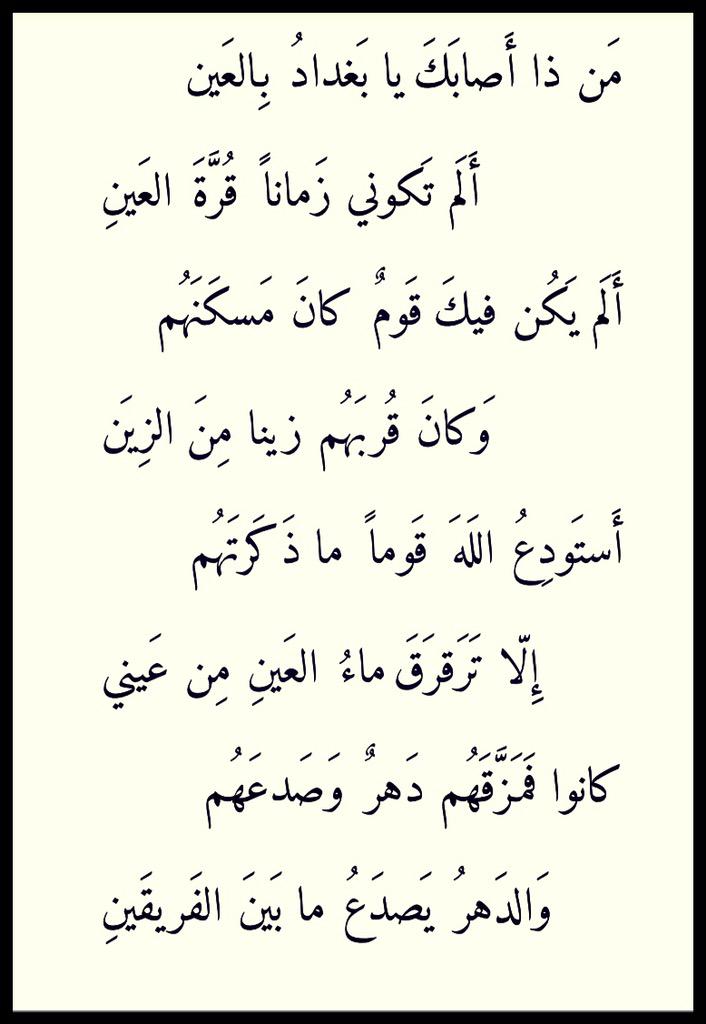 مَن ذا أَصابَكَ يا بَغدادُ بِالعَين
أَلَم تَكوني زَماناً قُرَّةَ العَينِ
أَلَم يَكُن فيكَ قَومٌ كانَ مَسكَنَهُم
وَكانَ قُربَهُم زينا مِنَ الزِيَن
أَستَودِعُ اللَهَ قَوماً ما ذَكَرتَهُم
إِلّا تَرَقرَقَ ماءُ العَينِ مِن عَيني
كانوا فَمَزَّقَهُم دَهرٌ وَصَدعَهُم
وَالدَهرُ يَصدَعُ ما بَينَ الفَريقَينِ